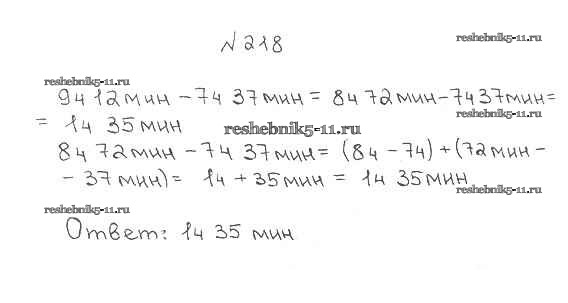 №218
reshebnik5-11.ru
reshebnik5-11.ru
9ч 12мин – 7ч 37мин = 8ч 72мин – 7ч 37мин =
reshebnik5-11.ru
= 1ч 35 мин
reshebnik5-11.ru
8ч 72мин – 7ч 37мин = (8ч – 7ч) + (72мин –
– 37мин) = 1ч + 35мин = 1ч 35мин
reshebnik5-11.ru
reshebnik5-11.ru
Ответ: 1ч 35 мин